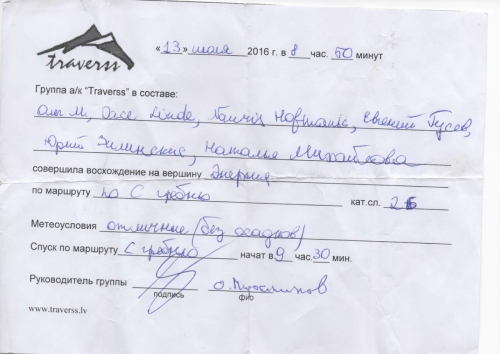 traverss
«13» июля 2016 г. в 8 час. 50 минут
Группа а/к "Traverss" в составе:
Олег М, Dace Linde, Hofmanis, Евгений Гусев,
Юрий Зилинский, Наталья
совершила восхождение на вершину Энергия
по маршруту по С гребню кат.сл. 2Б
Метеоусловия отличные (без осадков)
Спуск по маршруту С гребню начат в 9 час. 30 мин.
Руководитель группы О.
подпись фио
www.traverss.lv